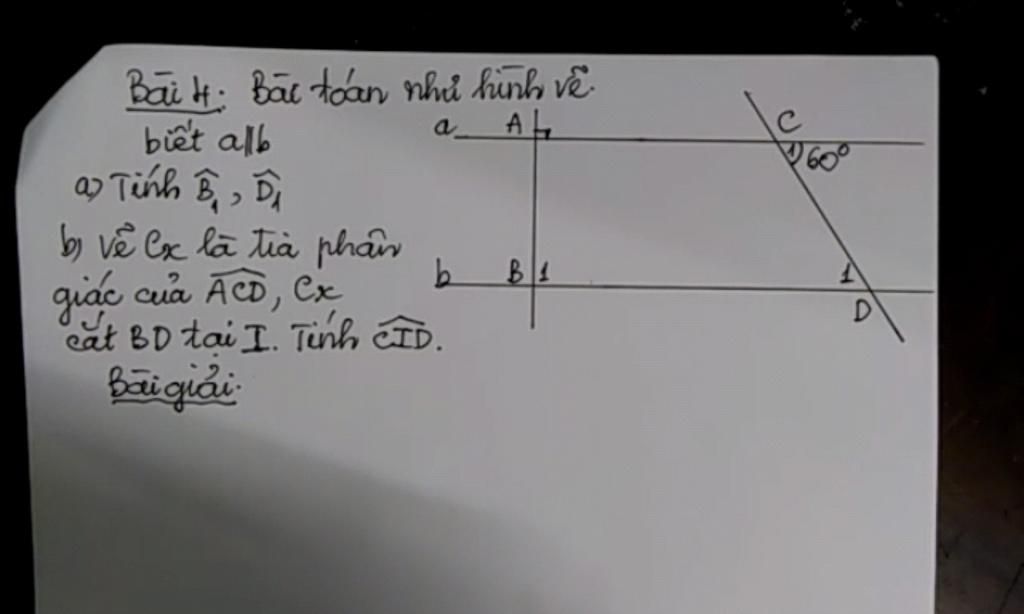 Bài 4: Bài toán như hình vẽ.
biết a∥b
a) Tính B̂₁, D̂₁
b) vẽ Cx là tia phân
giác của \widehat{ACD}, Cx
cắt BD tại I. Tính \widehat{CID}.
Bài giải.
a A C
1 60°
b B 1 1
D